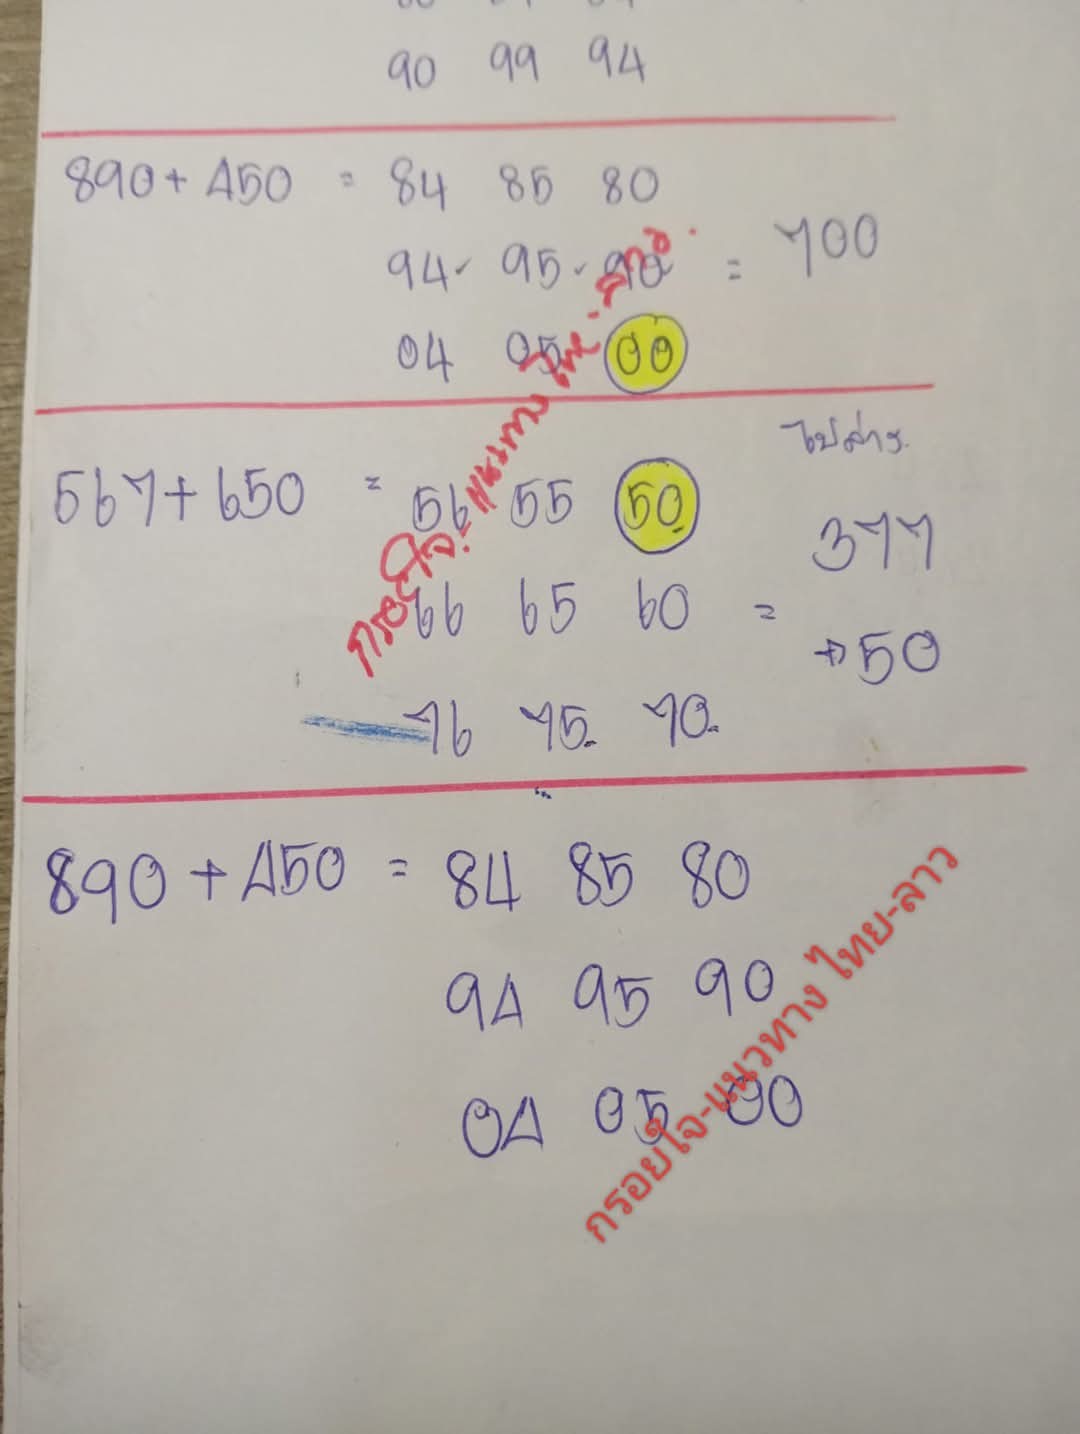 90 99 94
890 + 450 = 84 85 80
94 95 90 = 700
04 05 00
ไปล่าง
567 + 650 = 56 55 50
377
66 65 60 =
→50
76 75 70
890 + 450 = 84 85 80
94 95 90
04 05 00
กรอยใจ-แนวทาง ไทย-ลาว
กรอยใจ-แนวทาง ไทย-ลาว